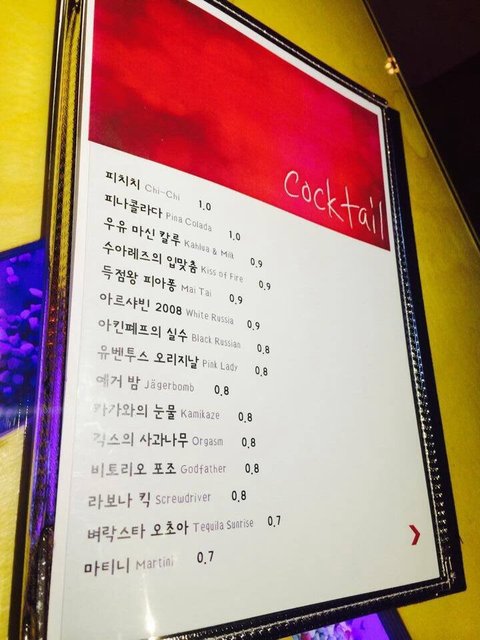 cocktail
피치치 Chi-Chi 1.0
피나콜라다 Pina Colada 1.0
우유 마신 칼루 Kahlua & Milk 0.9
수아레즈의 입맞춤 Kiss of Fire 0.9
득점왕 피아퐁 Mai Tai 0.9
아르샤빈 2008 White Russia 0.9
아킨페프의 실수 Black Russian 0.8
유벤투스 오리지날 Pink Lady 0.8
예거 밤 Jägerbomb 0.8
카가와의 눈물 Kamikaze 0.8
긱스의 사과나무 Orgasm 0.8
비토리오 포조 Godfather 0.8
라보나 킥 Screwdriver 0.8
벼락스타 오초아 Tequila Sunrise 0.7
마티니 Martini 0.7